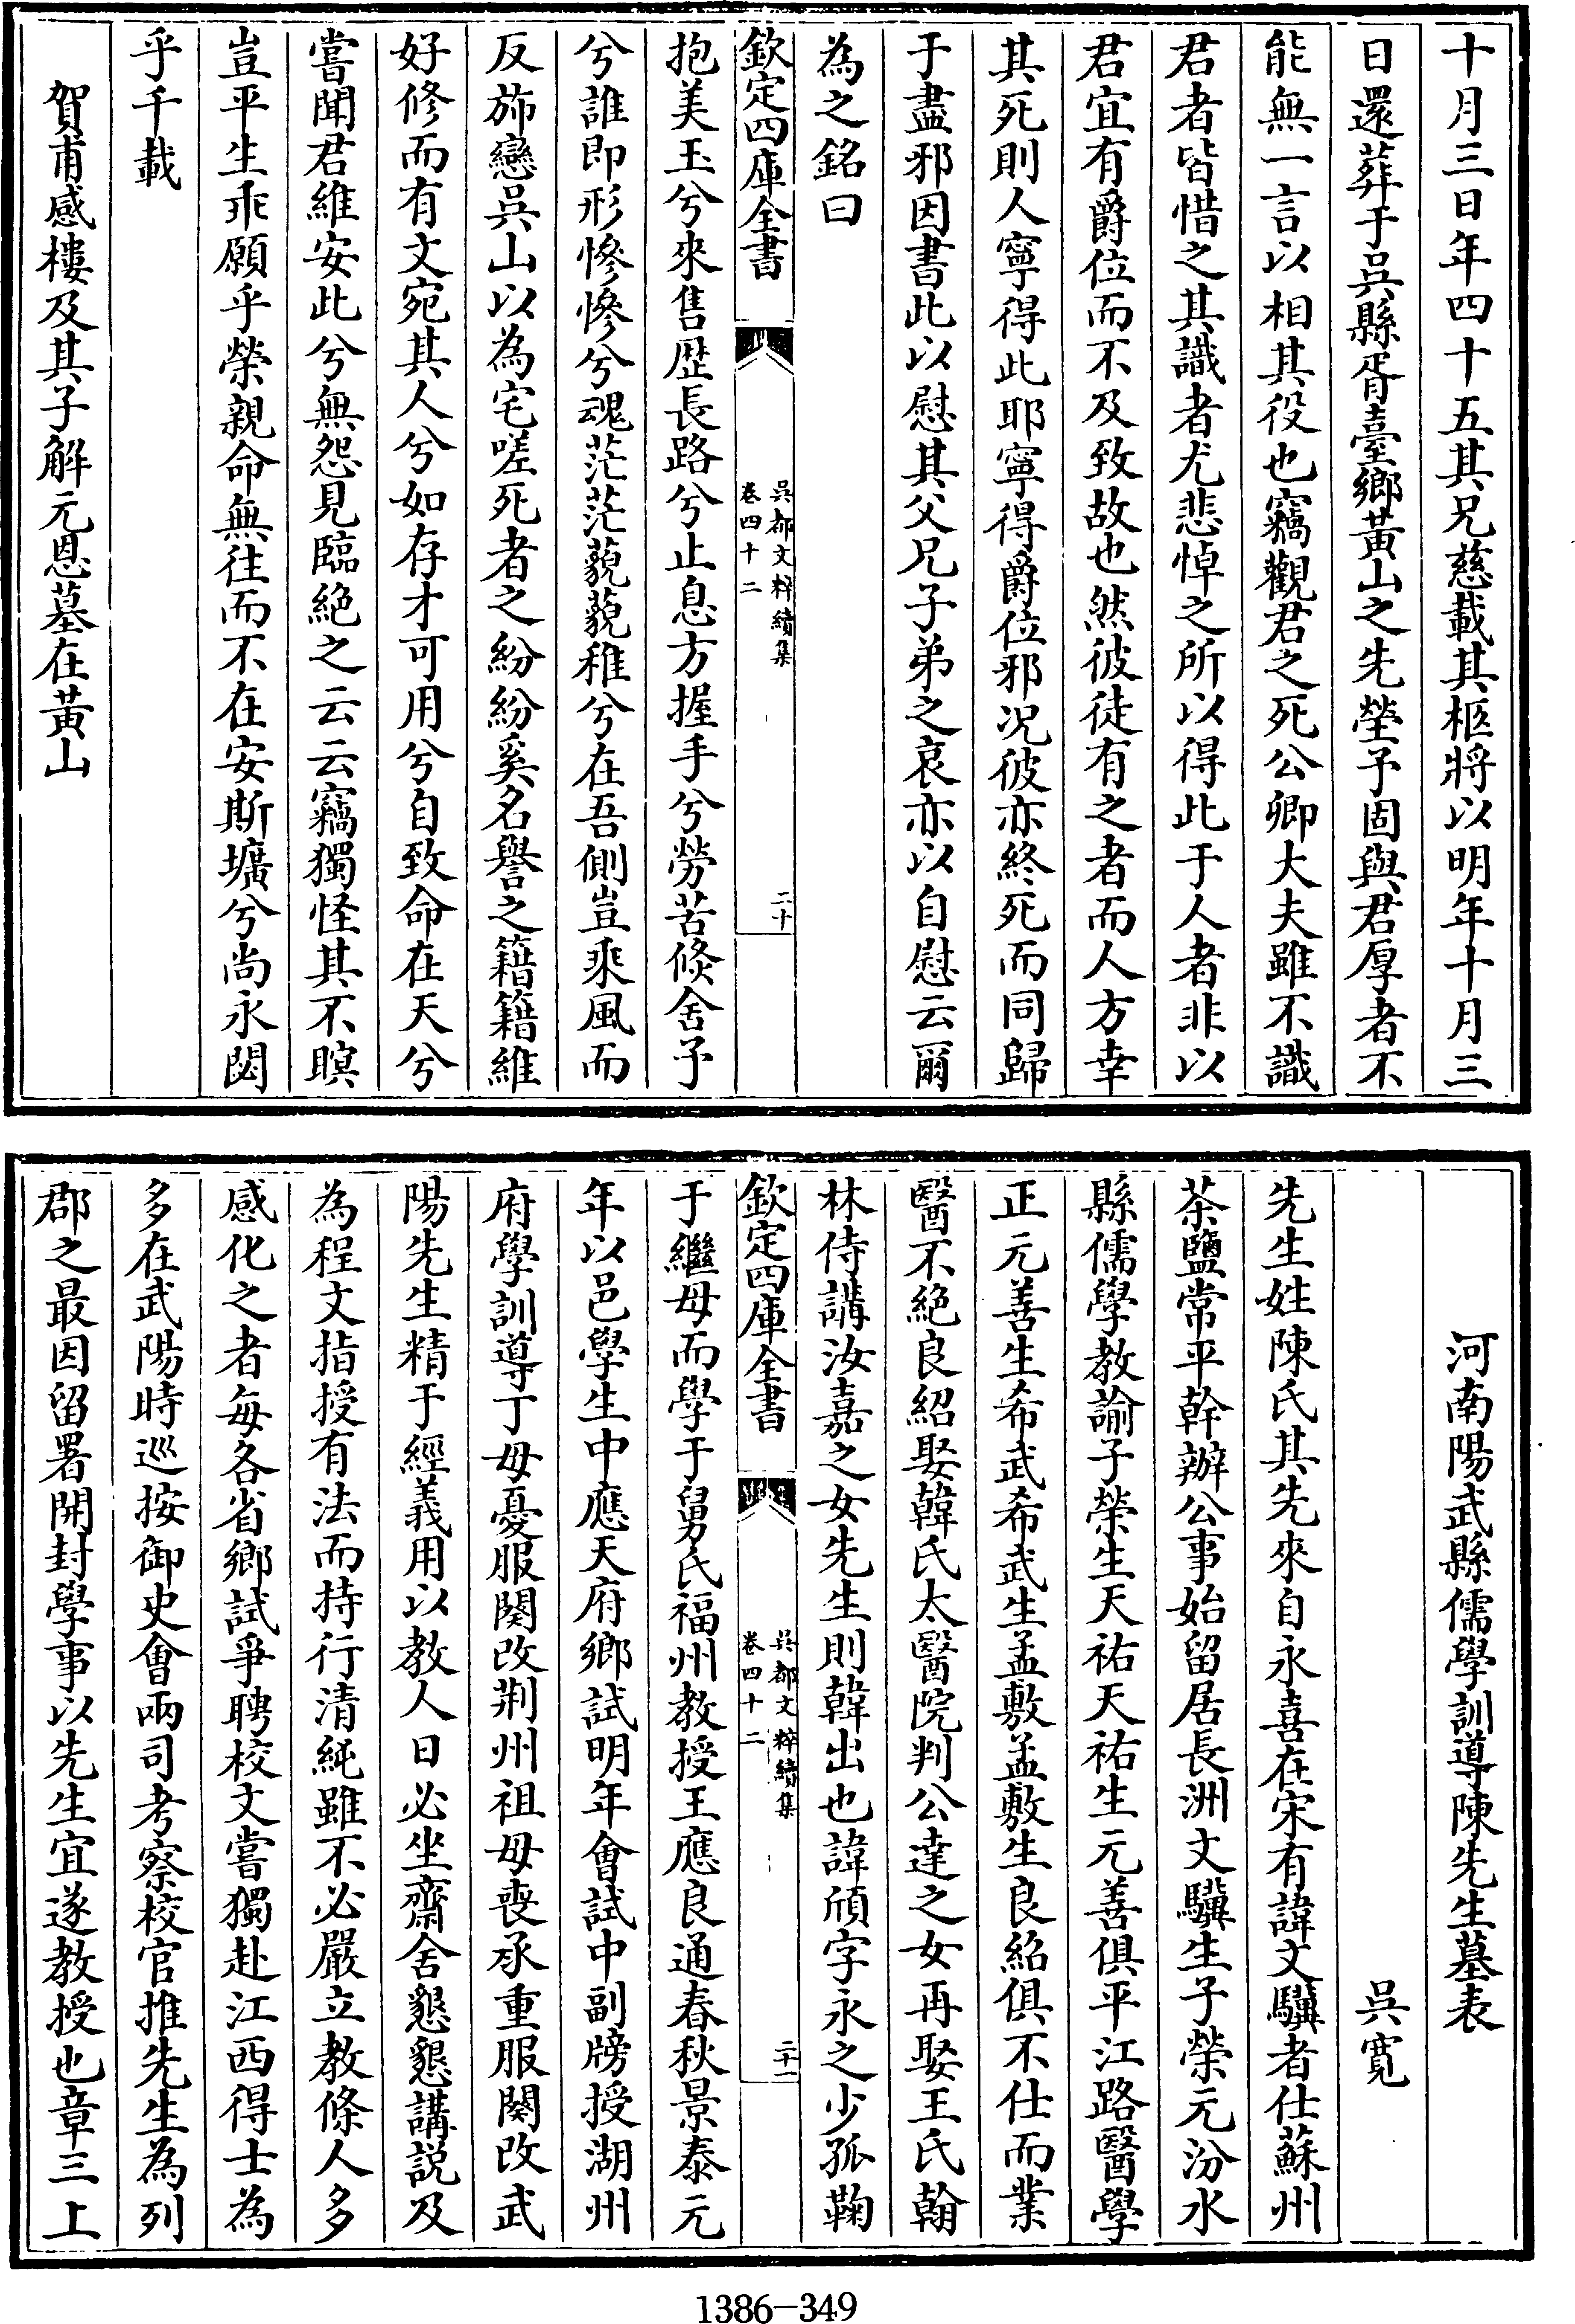 十月三日年四十五其兄慈載其柩將以明年十月三
日還葬于吳縣胥臺鄉黃山之先塋予固與君厚者不
能無一言以相其役也竊觀君之死公卿大夫雖不識
君者皆惜之其識者尤悲悼之所以得此于人者非以
君宜有爵位而不及致故也然彼徒有之者而人方幸
其死則人寧得此耶寧得爵位邪况彼亦終死而同歸
于盡邪因書此以慰其父兄子弟之哀亦以自慰云爾
為之銘曰
欽定四庫全書
吳都文粹續集
卷四十二
二十
抱美玉兮來售歴長路兮止息方握手兮勞苦倐舍予
兮誰即形慘慘兮魂茫茫藐藐稚兮在吾側豈乘風而
反斾戀吳山以為宅嗟死者之紛紛奚名譽之籍籍維
好修而有文宛其人兮如存才可用兮自致命在天兮
嘗聞君維安此兮無怨見臨絕之云云竊獨怪其不瞑
豈平生乖願乎榮親命無往而不在安斯壙兮尚永閟
乎千載
賀甫感樓及其子解元恩墓在黃山
河南陽武縣儒學訓導陳先生墓表
吳寬
先生姓陳氏其先來自永喜在宋有諱文驥者仕蘇州
茶鹽常平幹辦公事始留居長洲文驥生子榮元汾水
縣儒學教諭子榮生天祐天祐生元善俱平江路醫學
正元善生希武希武生孟敷孟敷生良紹俱不仕而業
醫不絕良紹娶韓氏太醫院判公達之女再娶王氏翰
林侍講汝嘉之女先生則韓出也諱頎字永之少孤鞠
欽定四庫全書
吳都文粹續集
卷四十二
二十一
于繼母而學于舅氏福州教授王應良通春秋景泰元
年以邑學生中應天府鄉試明年會試中副牓授湖州
府學訓導丁母憂服闋改荆州祖母喪承重服闋改武
陽先生精于經義用以教人日必坐齋舍懇懇講説及
為程文指授有法而持行清純雖不必嚴立教條人多
感化之者每各省鄉試爭聘校文嘗獨赴江西得士為
多在武陽時巡按御史會兩司考察校官推先生為列
郡之最因留署開封學事以先生宜遂教授也章三上
1386-349